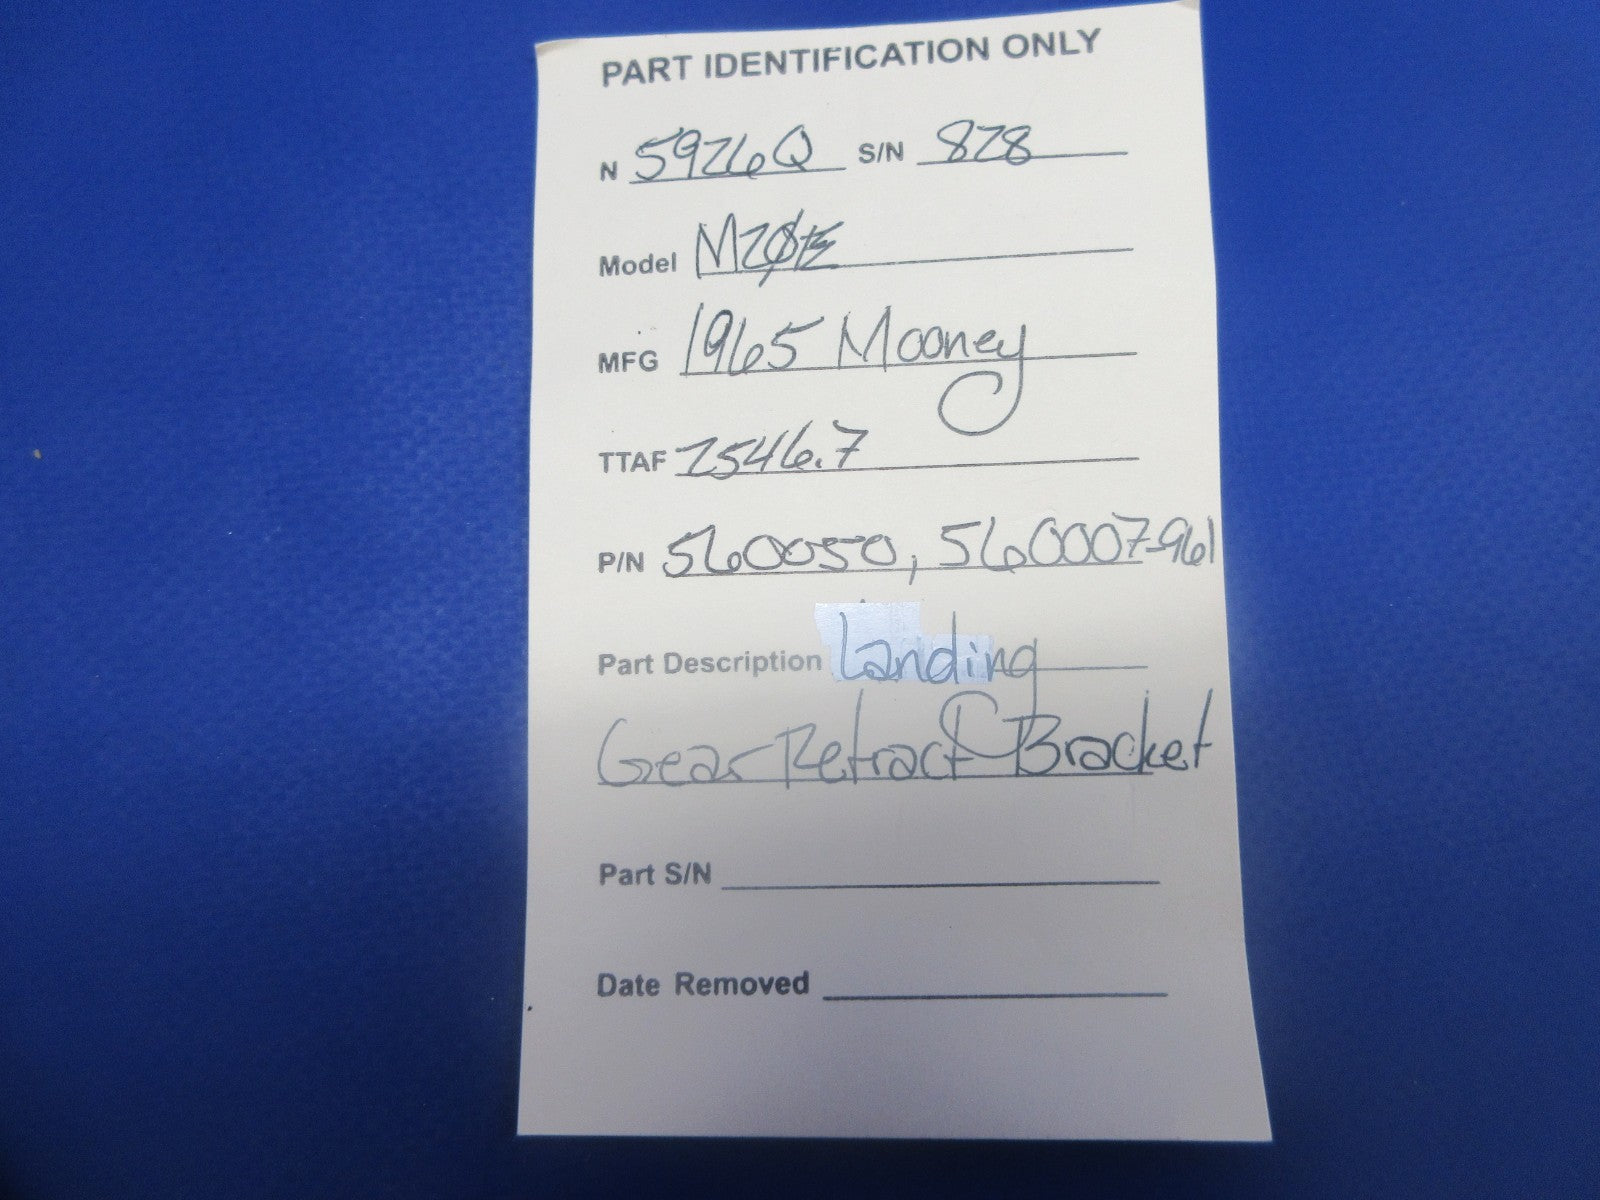 PART IDENTIFICATION ONLY
N 5926Q S/N 828
Model M20E
MFG 1965 Mooney
TTAF 2546.7
P/N 560050, 560007-961
Part Description Landing
Gear Retract Bracket
Part S/N
Date Removed